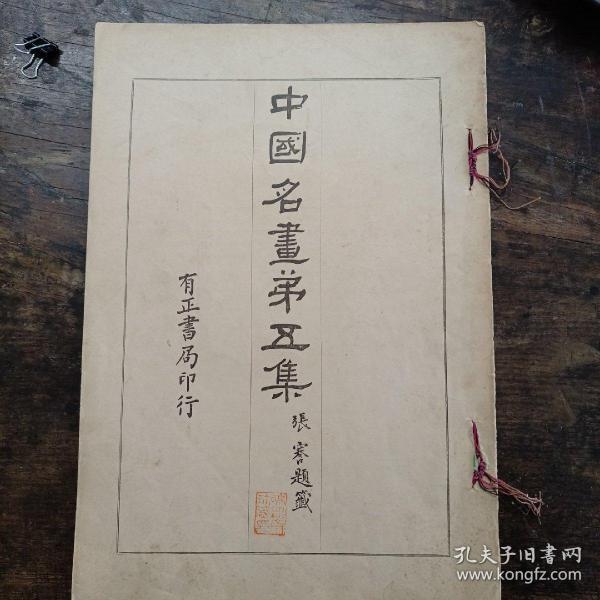 中國名畫苐五集
張謇題籤
有正書局印行
孔夫子旧书网
www.kongfz.com